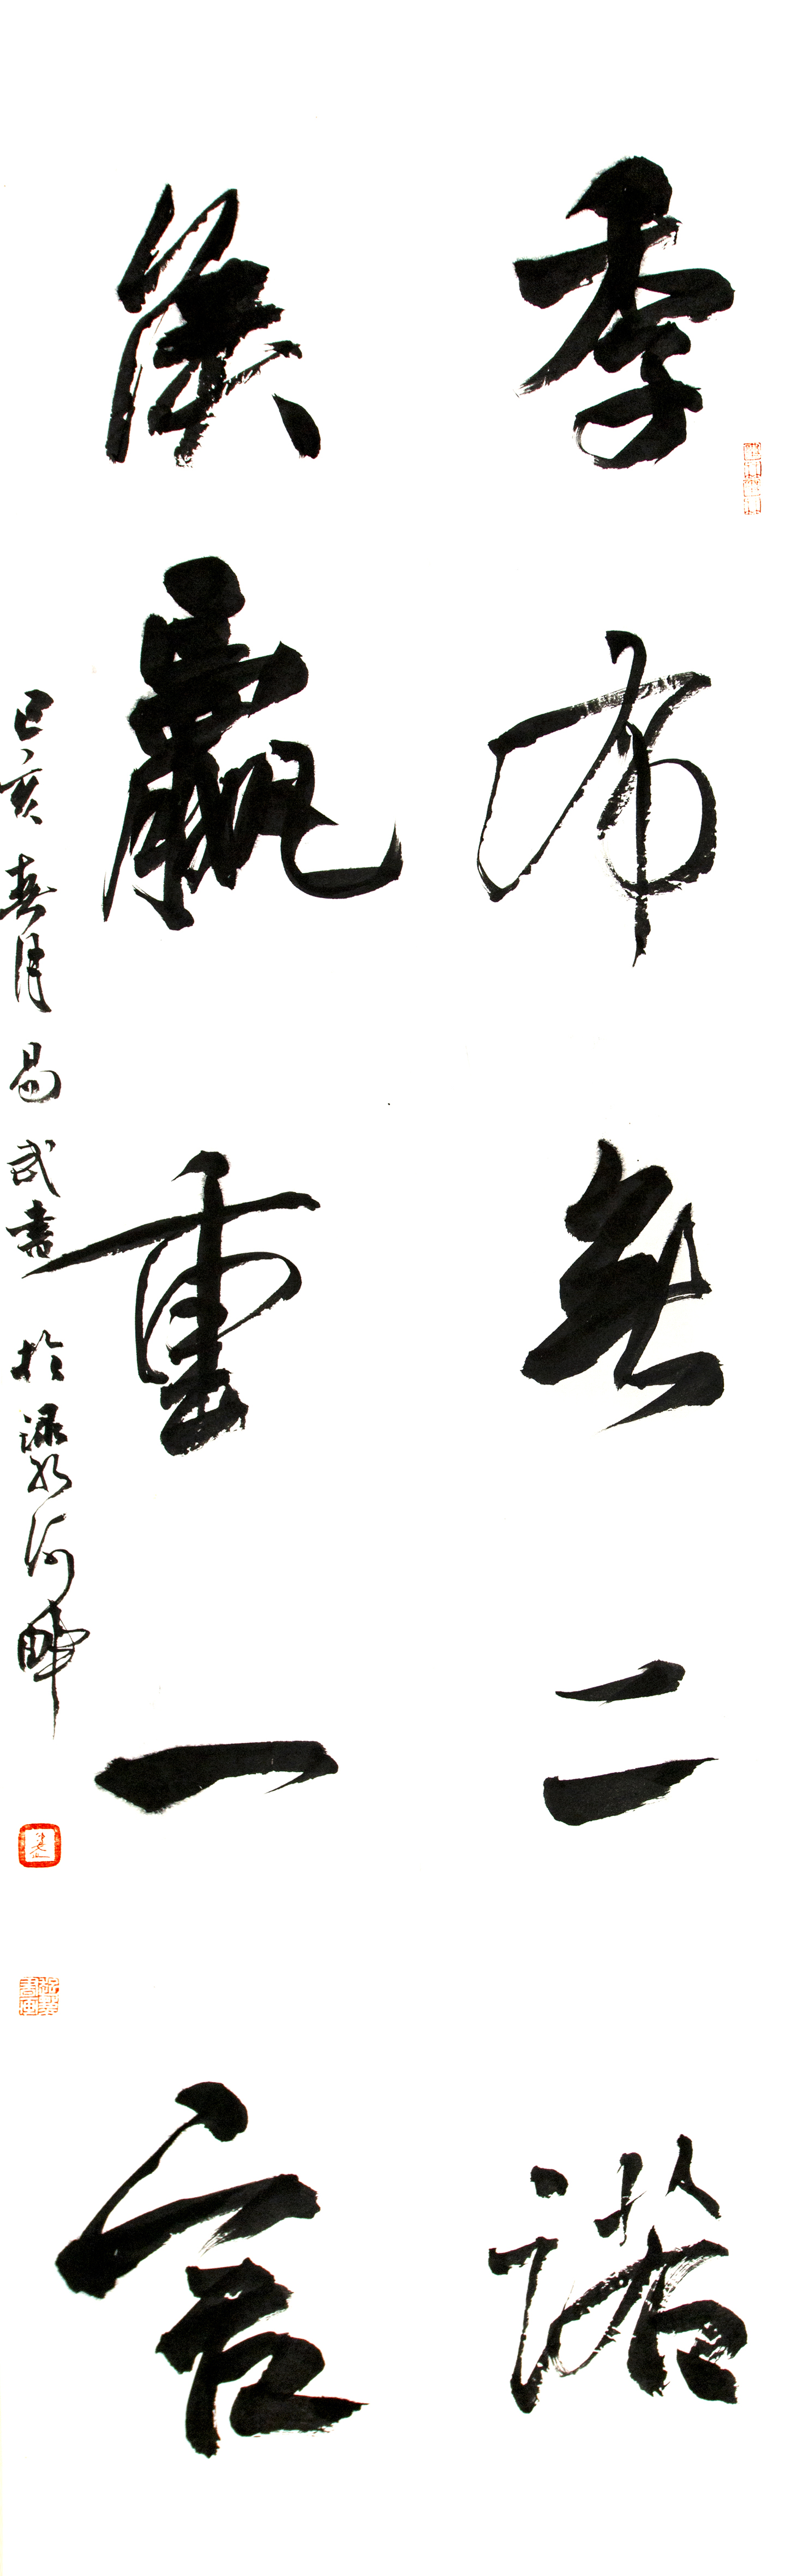 季布無二諾
侯嬴重一言
己亥春月易武書於渌水河畔